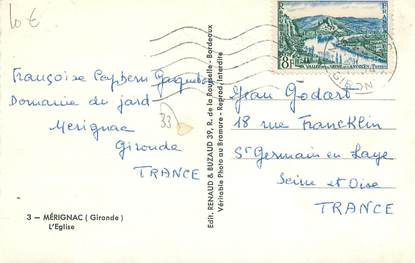 10 €
Françoise
Domaine du jard
Merignac
Gironde
TRANCE
33
3 — MÉRIGNAC (Gironde)
L'Eglise
Edit. RENAUD & BUZAUD 39, R. de la Rousselle - Bordeaux
Véritable Photo au Bromure - Reprod. Interdite
8F
VALLÉE DE LA SEINE AUX ANDELYS
GIRONDE
Jean Godart
18 rue Francklin
St Germain en Laye
Seine et Oise
TRANCE